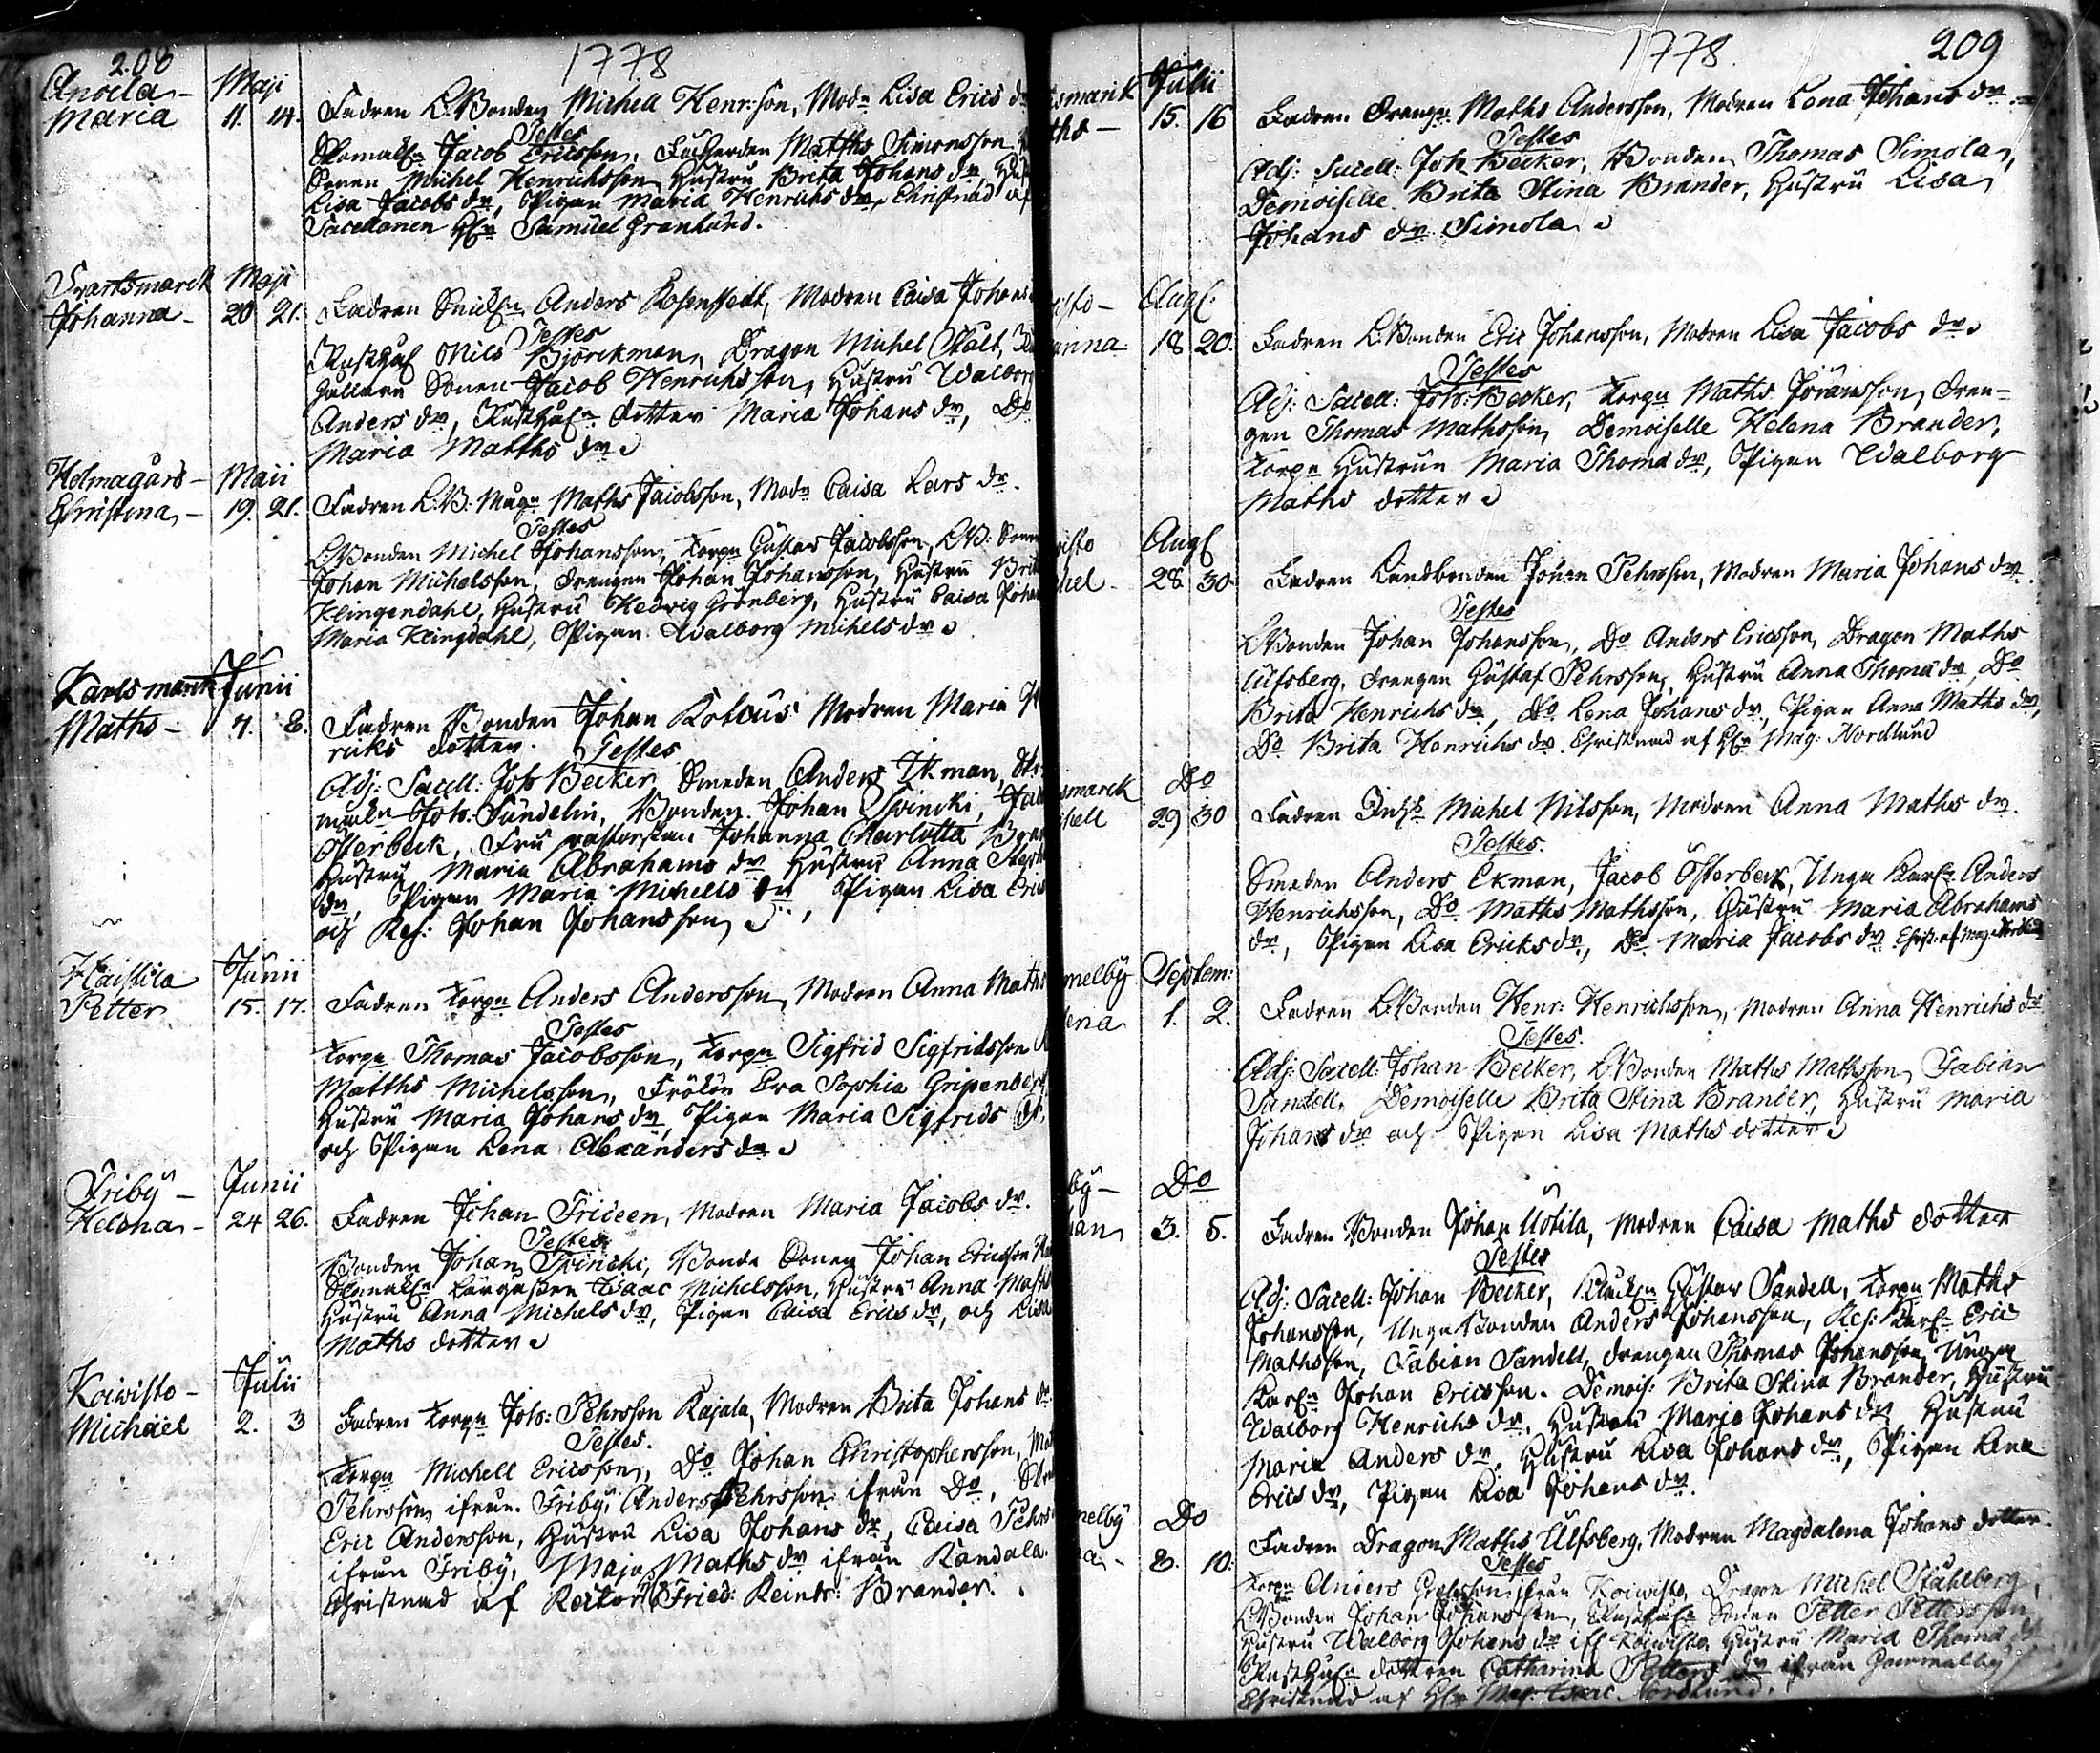 208
1778
Anoila-
Maji
Maria 11. 14. Fadren L. Bonden Michell Henr:son, Modn Lisa Erics dr
Testes
Jacob Ericsson, Matths Simonsson,
Sonen Michel Henrichsson Hustru Brita Johans dr,
Lisa Jacobs dr, Pigan Maria Henrichs dr, Christnad af
Sacellanen Hr Samuel Granlund.
Svartsmarck Maji
Johanna- 20 21. Fadren Anders Rosenstedt, Modren Caisa Johans
Testes
Nils Björckman, Dragon Michel Stålt,
Sonen Jacob Henrichsson, Hustru Walborg
Anders dr, dotter Maria Johans dr, Do
Maria Matths dr
Holmagårs- Maii
Christina,- 19. 21. Fadren L.B. Måg Maths Jacobsson, Modn Caisa Lars dr.
Testes
L.Bonden Michel Johansson, Torpn Gustav Jacobsson, L.B: Sonen
Johan Michelsson, Drengen Johan Johansson, Hustru Brit
Klingendahl, Hustru Hedvig Grönberg, Hustru Caisa Johan
Maria Klingdahl, Pigan Walborg Michels dr
Karlsmarck Junii
Maths- 7. 8. Fadren Bonden Johan Kotcus Modren Maria
ricks dotter. Testes
Adj: Sacell: Joh Becker Smeden Anders Ekman,
Joh. Sundelin, Bonden Johan Spincki,
Österbeck, Fru pastorskan Johanna Charlotta Bran
Hustru Maria Abrahams dr Hustru Anna Steph
dr, Pigan Maria Michells dr, Pigan Lisa Eric
och Res: Johan Johansson
Haistila Junii
Petter 15. 17. Fadren Torpn Anders Andersson, Modren Anna Maths
Testes
Torpn Thomas Jacobsson, Torpn Sigfrid Sigfridsson
Matths Michelsson, Frökn Eva Sophia Gripenberg
Hustru Maria Johans dr, Pigan Maria Sigfrids dr.
och Pigan Lena Alexanders dr
Friby- Junii
Helena,- 24 26. Fadren Johan Frideen, Modren Maria Jacobs dr.
Testes
Bonden Johan Spincki, Bonde Sonen Johan Ericsson
Isaac Michelsson, Hustru Anna Maths
Hustru Anna Michels dr, Pigan Caisa Erics dr, och Lisa
Maths dotter
Koivisto- Julii
Michael 2. 3 Fadren Torpn Joh: Pehrsson Kajala, Modren Brita Johans dr.
Testes.
Torpn Michell Ericsson, Do Johan Christophersson,
Pehrsson ifrån Friby, Anders Pehrsson ifrån Do,
Eric Andersson, Hustru Lisa Johans dr, Caisa Pehrs
ifrån Friby, Maja Maths dr ifrån Kandala.
Christnad af Rector Fried: Reinh: Brander.
1778. 209
smarck Julii
ths- 15. 16 Fadren Drengn Maths Andersson, Modren Lena Johans dr.
Testes
Adj: Sacell: Joh Becker, Bonden Thomas Simola,
Demoiselle Brita Stina Brander, Hustru Lisa
Johans dr Simola
isto- Aug:
anna 18 20. Fadren L.Bonden Eric Johansson, Modren Lisa Jacobs dr
Testes
Adj: Sacell: Joh: Becker, Torpn Maths Jöransson, Dren=
gen Thomas Mathsson, Demoiselle Helena Brander,
Torpn Hustrun Maria Thoms dr, Pigan Walborg
Maths dotter
isto Aug
hel- 28. 30 Fadren Landbonden Johan Pehrsson, Modren Maria Johans dr.
Testes
L.Bonden Johan Johansson, Do Anders Ericsson, Dragon Maths
Ulfsberg, Drengen Gustaf Pehrsson, Hustru Anna Thoms dr, Do
Brita Henrichs dr, Do Lena Johans dr, Pigan Anna Maths dr,
Do Brita Henrichs dr. Christnad af Hr Mag: Nordlund
smarck Do
hell 29 30 Fadren Michel Nilsson, Modren Anna Maths dr.
Testes.
Smeden Anders Ekman, Jacob Österbeck, Unga Karln Anders
Henrichsson, Do Maths Mathsson, Hustru Maria Abrahams
dr, Pigan Lisa Ericks dr, Do Maria Jacobs dr Christ: af Mag: Nordlund
melby Septem:
ena 1. 2. Fadren L.Bonden Henr: Henrichsson, Modren Anna Henrichs dr
Testes.
Adj: Sacell: Johan Becker, L.Bonden Maths Mathsson, Fabian
Sandell, Demoiselle Brita Stina Brander, Hustru Maria
Johans dr och Pigan Lisa Maths dotter
by- Do
han 3. 5. Fadren Bonden Johan Uotila, Modren Caisa Maths dotter
Testes
Adj: Sacell: Johan Becker, Gustav Sandell, Torpn Maths
Johansson, Unga Bonden Anders Johansson, Res: Karln Eric
Mathsson, Fabian Sandell, Drengen Thomas Johansson, Unga
Karln Johan Ericsson. Demois: Brita Stina Brander, Hustru
Walborg Henrichs dr, Hustru Marja Johans dr Hustru
Maria Anders dr, Hustru Lisa Johans dr, Pigan Lena
Erics dr, Pigan Lisa Johans dr.
melby Do
a- 8. 10. Fadren Dragon Maths Ulfsberg, Modren Magdalena Johans dotter.
Testes
Torpn Anders ifrån Koivisto, Dragon Michel Stählberg,
L.Bonden Johan Johansson, Sonen Petter Pettersson
Hustru Walborg Johans dr ifr Koivisto, Hustru Maria Thoms dr
dottren Catharina Petters dr ifrån Gammelby
Christnad af Hr Mag. Isaac Nordlund.